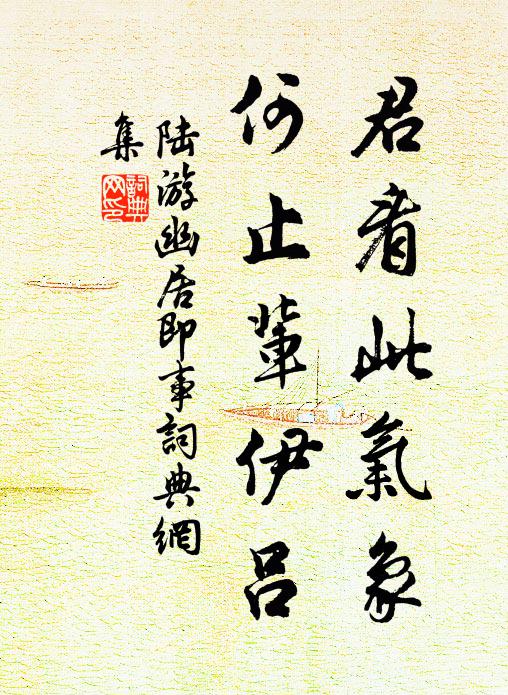 君看此氣象
何止輩伊呂
陸游幽居即事詞典網
集
詞典网印